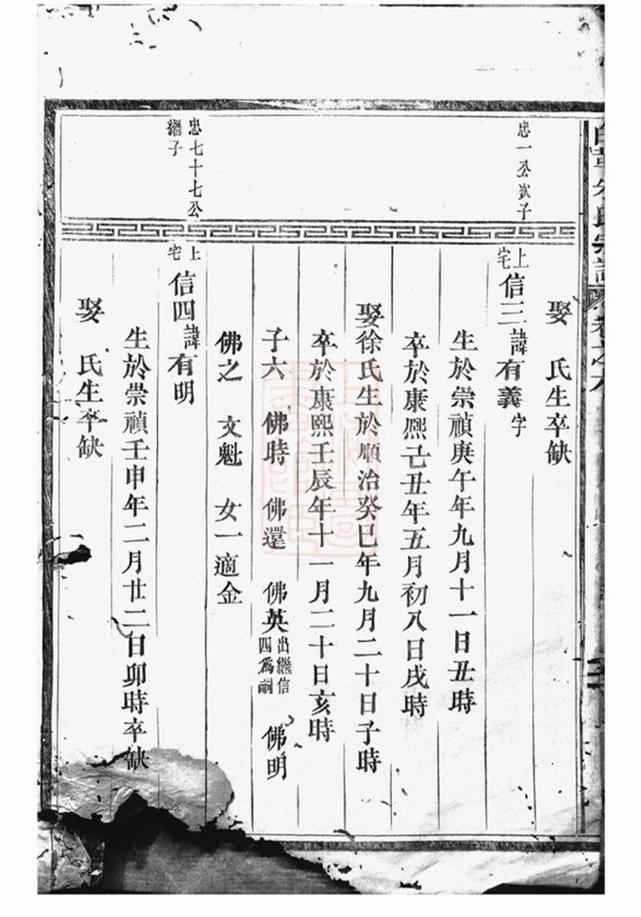 氏宗譜 卷之
娶 氏生卒缺
忠一公次子
上宅信三諱有義字
生於崇禎庚午年九月十一日丑時
卒於康熙己丑年五月初八日戌時
娶徐氏生於順治癸巳年九月二十日子時
卒於康熙壬辰年十一月二十日亥時
子六 佛時 佛還 佛英出繼信四爲嗣 佛明
佛之 文魁 女一適金
忠七十七公
繼子
上宅信四諱有明
生於崇禎壬申年二月廿二日卯時卒缺
娶 氏生卒缺